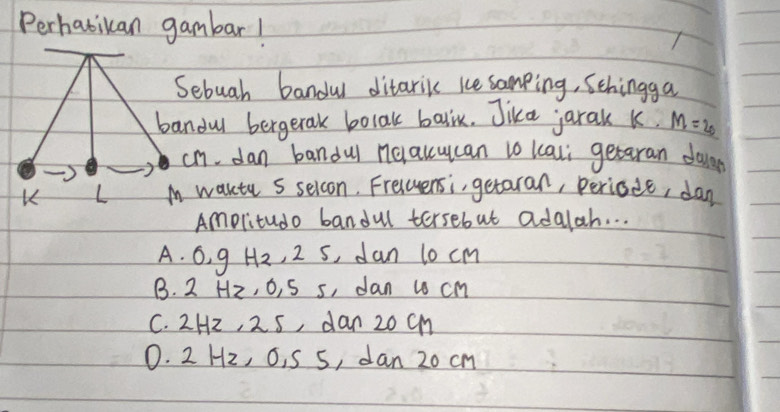 Perhatikan gambar!
Sebuah bandul ditarik ke samping, Sehingga
bandul bergerak bolak balik. Jika jarak K. M = 20
cm. dan bandul Melakukan 10 kali getaran dalam
K L M waktu 5 sekon. Frekuensi, getaran, periode, dan
Amplitudo bandul tersebut adalah...
A. 0,9 Hz, 2 s, dan 10 cm
B. 2 Hz, 0,5 s, dan 10 cm
C. 2 Hz, 2 s, dan 20 cm
D. 2 Hz, 0,5 s, dan 20 cm